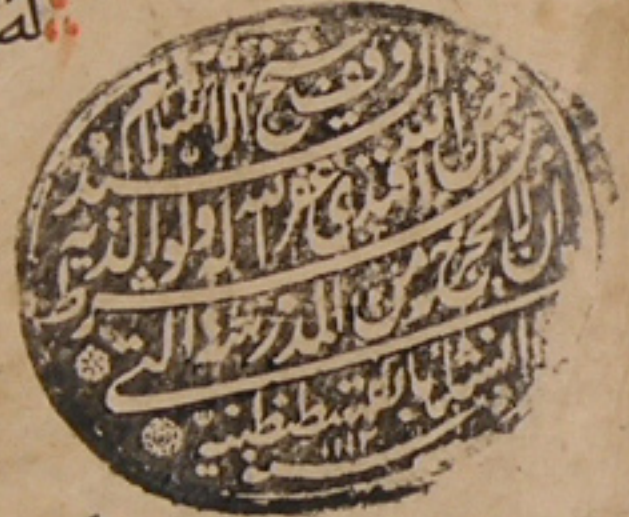 له
وقف شيخ الاسلام
السيد فيض الله
افندي غفر الله له ولوالديه
بشرط ان لا يخرج من المدرسة التي
انشأها بقسطنطينية
سنة ١١١٢